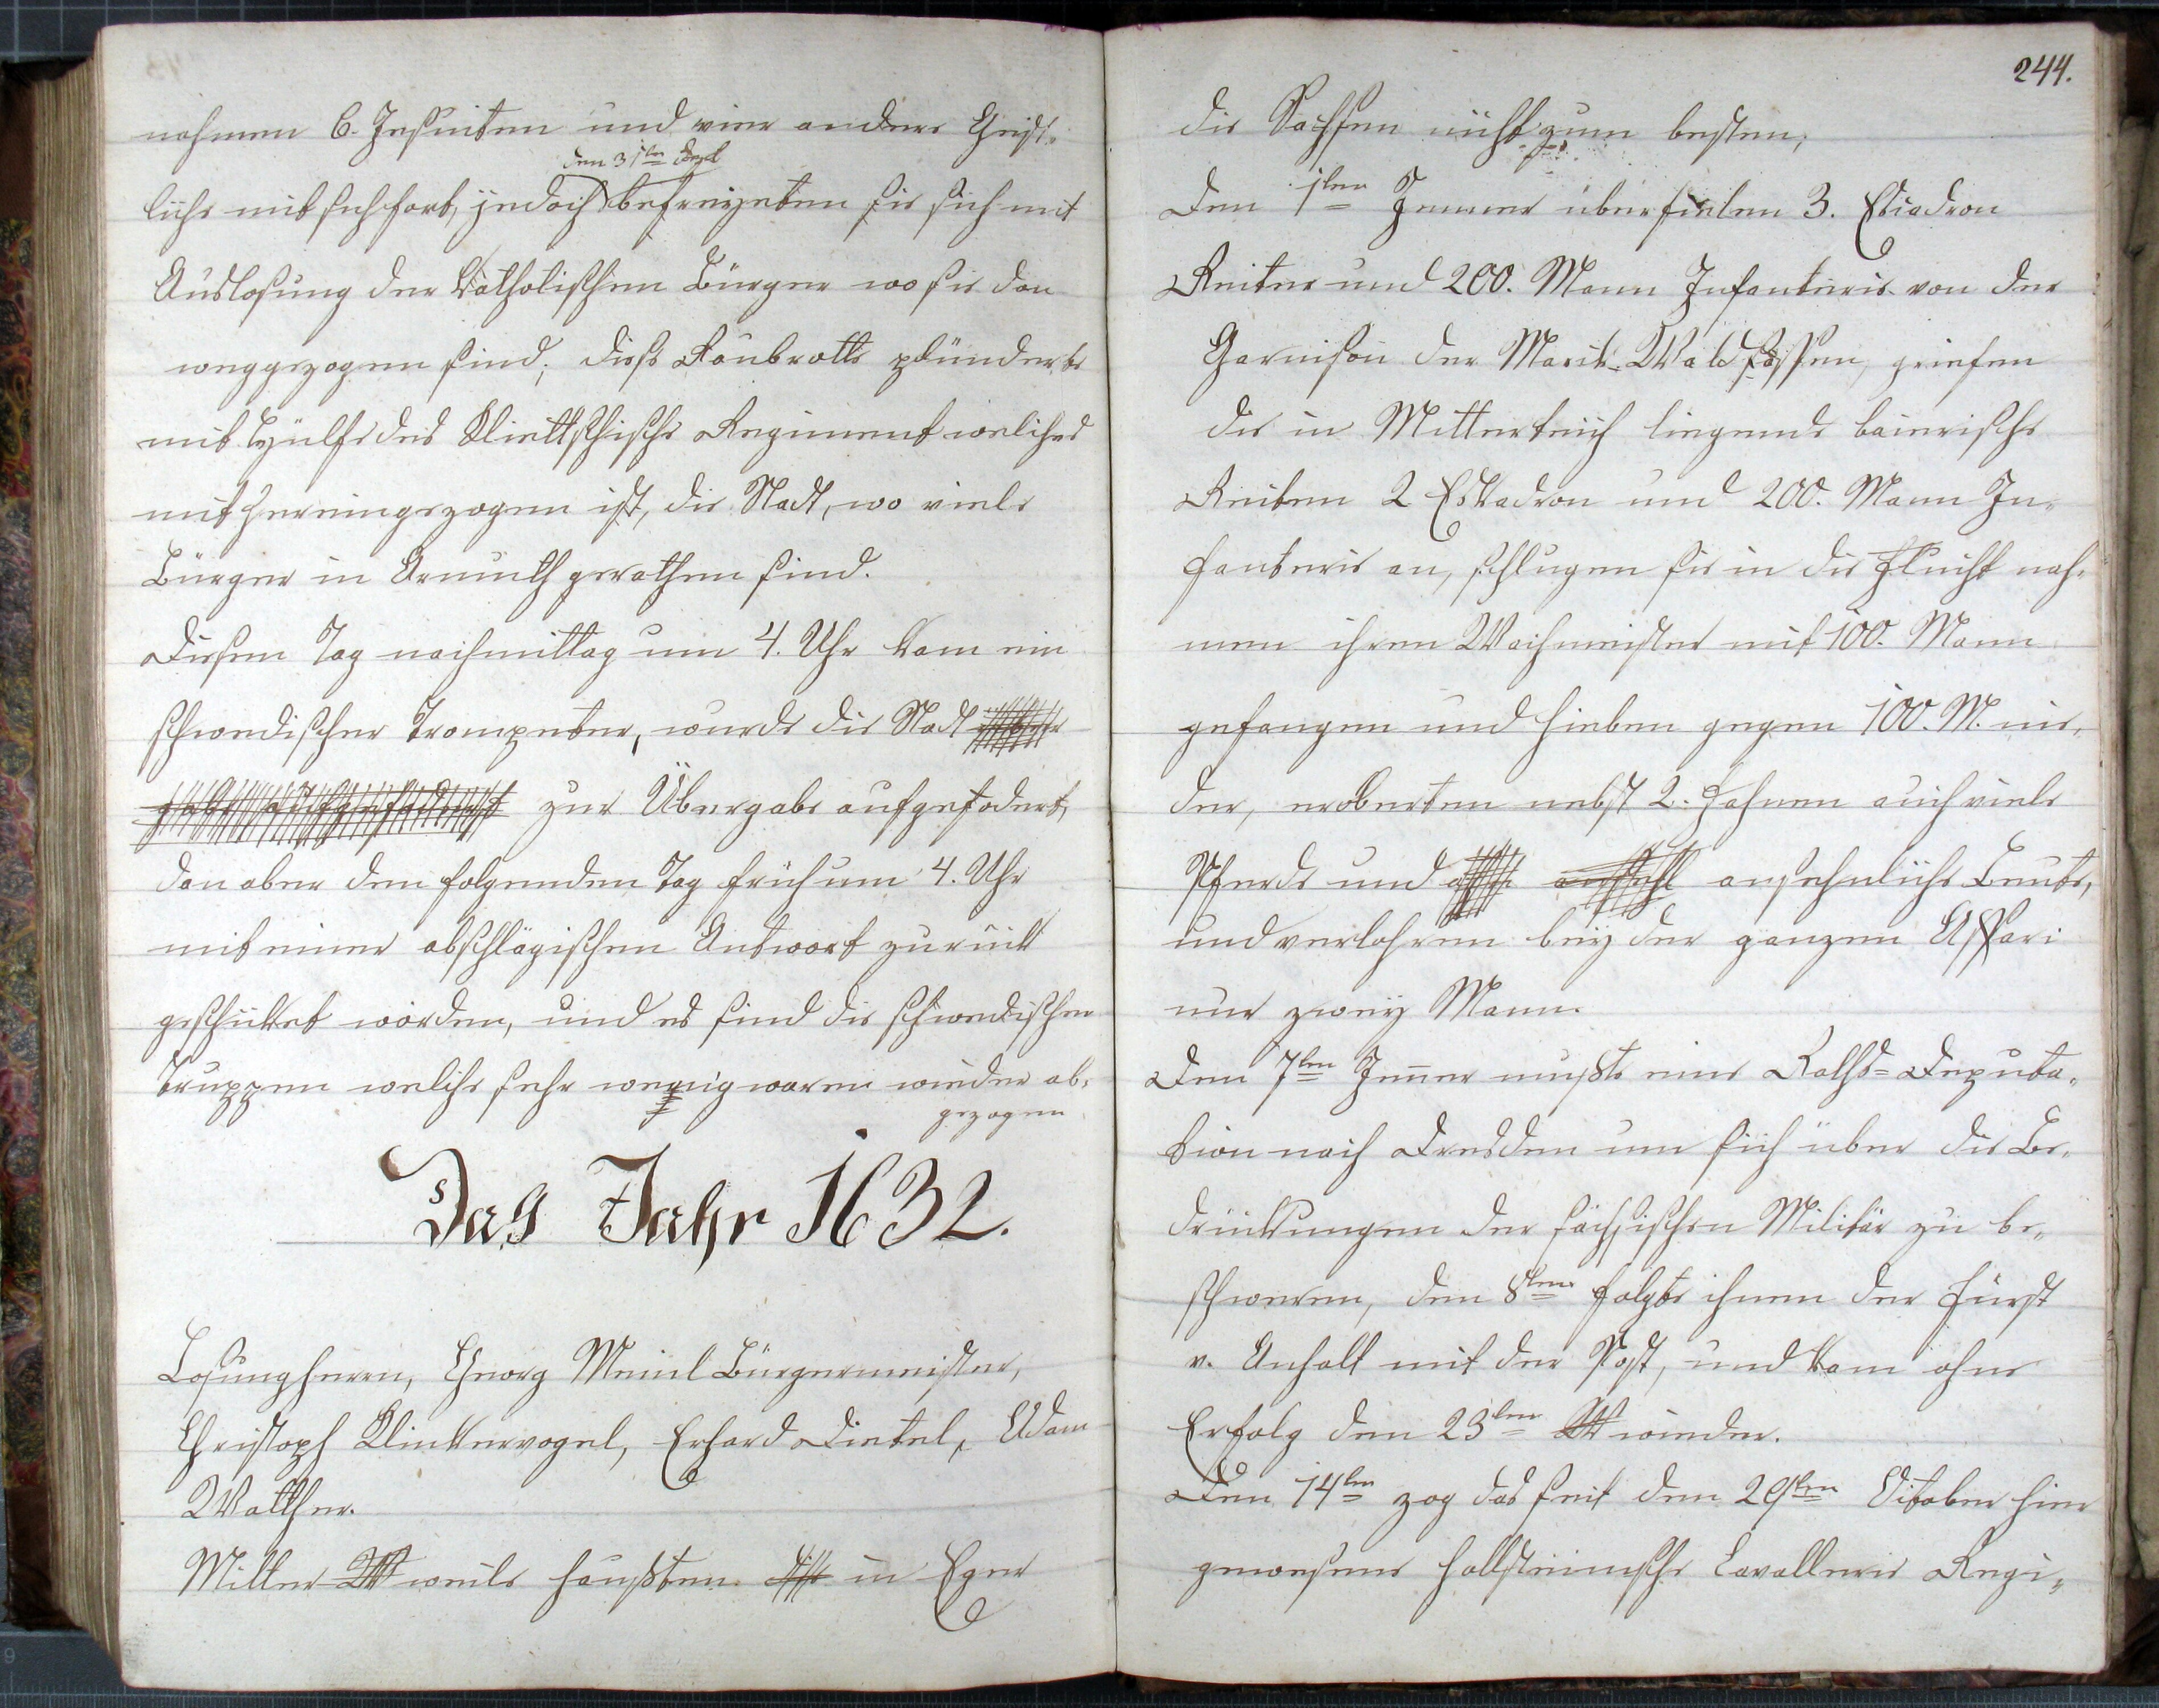 nahmen 6. Jesuiten und vier andere Geist-
den 31ten Dezb
liche mit sich fort, jedoch befreyeten sie sich mit
Auslosung der Katholischen Bürger wo sie dan
weggezogen sind; diese Raubrotte plünderte
mit Hülfe des Kliettschische Regiment welches
mit hereingezogen ist, die Stadt, wo viele
Bürger in Armuth gerathen sind.
Diesen Tag nachmittag um 4. Uhr kam ein
schwedischer Trompeter, wurde die Stadt
gabe aufgefodert zur Übergabe aufgefodert,
dan aber den folgenden Tag früh um 4. Uhr
mit einer abschlägischen Antwort zurück
geschicket worden, und es sind die schwedischen
Truppen welche sehr wenig waren wieder ab-
gezogen
Das Jahr 1632.
Losungherrn, Georg Meinl Bürgermeister,
Christoph Klinkervogel, Erhard Dietel, Adam
Walther.
Mittler W weile haußten in Eger
244.
die Sachsen nicht zum besten,
Den 1ten Jenner überfielen 3. Escadron
Reiter und 200. Mann Infanterie von der
Garnison der Markt Waldsassen, griefen
die in Mitterteich liegende bairische
Reitern 2 Eskadron und 200. Mann In-
fanterie an, schlugen sie in die Flucht nah-
men ihren Wachmeister mit 100. Mann
gefangen und hieben gegen 100. M. nie-
der, eroberten nebst 2. Fahnen auch viele
Pferde und ansehnliche Beute,
und verlohren bey der ganzen Affari
nur zwey Mann.
Den 7ten Jenner mußte eine Raths-Deputa-
tion nach Dresden um sich über die Be-
drückungen der sächsischen Militär zu be-
schweren, den 8ten folgte ihnen der Fürst
v. Anhalt mit der Post, und kam ohne
Erfolg den 23ten W wieder.
Den 14ten zog das seit dem 29ten October hier
gewesene hollsteinische Cavallerie Regi-